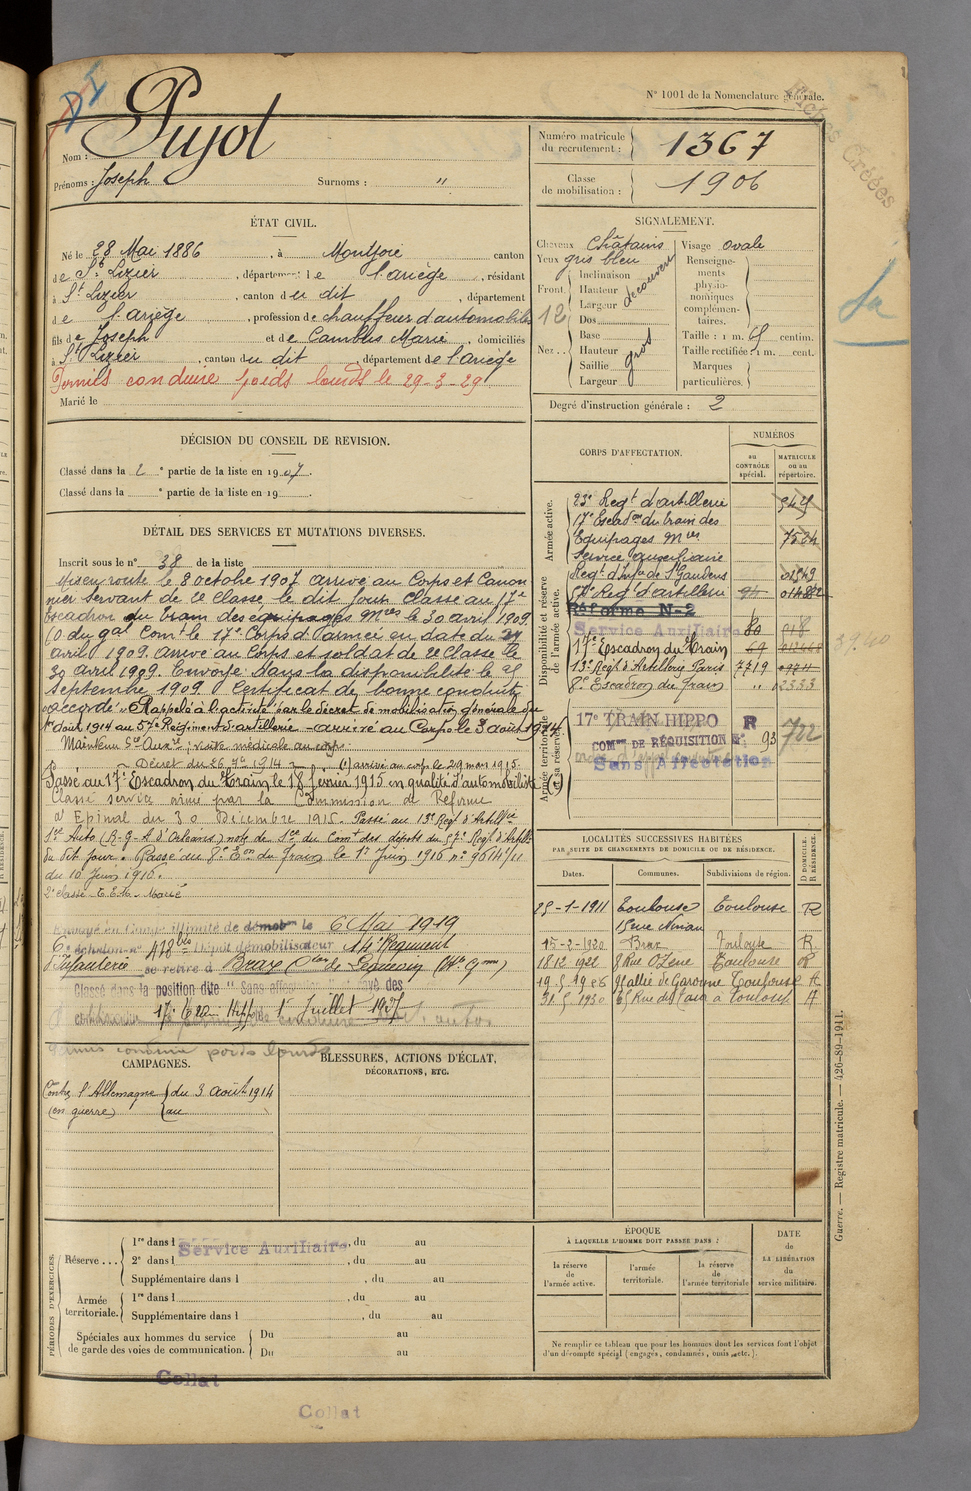 N° 1001 de la Nomenclature générale.
Fiches Créées
Pujol
Nom :
Prénoms : Joseph Surnoms : "
Numéro matricule du recrutement : 1367
Classe de mobilisation : 1906
ÉTAT CIVIL.
Né le 28 Mai 1886, à Montfoie canton
de St Lizier, département de l'ariège, résidant
à St Lizier, canton du dit, département
de l'ariège, profession de chauffeur d'automobiles
fils de Joseph et de Camblis Marie, domiciliés
à St Lizier, canton du dit, département de l'ariège
Permis conduire poids lourds le 29-3-29
Marié le
SIGNALEMENT.
Cheveux Châtains
Yeux gris bleu
Front Inclinaison
Hauteur
Largeur
découvert
Nez Dos
Base
Hauteur
Saillie
Largeur
gros
12
Visage ovale
Renseignements physionomiques complémentaires.
Taille : 1 m. 65 centim.
Taille rectifiée : 1 m. cent.
Marques particulières.
Degré d'instruction générale : 2
DÉCISION DU CONSEIL DE REVISION.
Classé dans la 2e partie de la liste en 1907.
Classé dans la e partie de la liste en 19 .
DÉTAIL DES SERVICES ET MUTATIONS DIVERSES.
Inscrit sous le n° 38 de la liste
Mis en route le 8 octobre 1907 arrivé au Corps et Canon
nier servant de 2e Classe, le dit jour. Classé au 17e
Escadron du train des équipages Mres le 30 avril 1909.
(O du gal Comt le 17e Corps d'armée en date du 27
avril 1909. arrivé au Corps et soldat de 2e Classe le
30 avril 1909. Envoyé dans la disponibilité le 25
Septembre 1909 Certificat de bonne conduite
accordé. Rappelé à l'activité par le décret de mobilisation générale du
1er août 1914 au 57e Régiment d'artillerie arrivé au Corps le 3 août 1914
Maintenu Sce Auxre ; visite médicale au corps.
Décret du 26 7bre 1914 (1) arrivé au corps le 29 mars 1915.
Passé au 17e Escadron du Train le 18 février 1915 en qualité d'automobiliste (1)
Classé service armé par la Commission de Réforme
d'Epinal du 30 Décembre 1915. Passé au 13e Regt d'Artillie
Sce Auto (R.G.A d'Orléans) note de Sce du Comt des dépots du 57e Regt d'Artie
du dit jour. Passé au 8e Eon du Train le 1er Juin 1916 n° 9614/11
du 10 Juin 1916.
Envoyé en Congé illimité de démobon le 6 Mai 1919
6e échelon n° 418 bis Dépôt démobilisateur 14e Régiment
d'Infanterie se retire à Brax Cton de Leguevin (Hte Gnne)
Classé dans la position dite "Sans affectation"
17e Eon Hippo 1er Juillet 1927
permis conduire poids lourds
CORPS D'AFFECTATION.
NUMÉROS
au CONTRÔLE spécial.
MATRICULE ou au répertoire.
Armée active.
23e Regt d'artillerie
17e Escadon du train des
Equipages Mres
Service auxiliaire
Disponibilité et réserve de l'armée active.
Regt d'Infie de St Gaudens
57e Regt d'artillerie
Réforme N-2
Service Auxiliaire
17e Escadron du Train 69
13e Regt d'Artillerie Paris 7719
8e Escadron du Train " 12333
Armée territoriale et sa réserve.
17e TRAIN HIPPO R
COMon DE RÉQUISITION N° 93 722
Sans Affectation
39.40
LOCALITÉS SUCCESSIVES HABITÉES
PAR SUITE DE CHANGEMENTS DE DOMICILE OU DE RÉSIDENCE.
Dates. Communes. Subdivisions de région. D DOMICILE. R RÉSIDENCE.
25-1-1911 Toulouse Toulouse R
15-2-1920 Brax Toulouse R
18 12 1922 8 Rue Ozene Toulouse R
19.5.1926 allée de Garonne Toulouse R
21.5.1930 Rue à Toulouse R
CAMPAGNES.
Contre l'Allemagne du 3 août 1914
(en guerre) au
BLESSURES, ACTIONS D'ÉCLAT,
DÉCORATIONS, ETC.
PÉRIODES D'EXERCICES.
Réserve... 1re dans l , du au
Service Auxiliaire
2e dans l , du au
Supplémentaire dans l , du au
Armée territoriale. 1re dans l , du au
Supplémentaire dans l , du au
Spéciales aux hommes du service de garde des voies de communication. Du au
Du au
ÉPOQUE
À LAQUELLE L'HOMME DOIT PASSER DANS :
la réserve de l'armée active.
l'armée territoriale.
la réserve de l'armée territoriale
DATE de LA LIBÉRATION du service militaire.
Ne remplir ce tableau que pour les hommes dont les services font l'objet
d'un décompte spécial (engagés, condamnés, omis, etc.).
Guerre. — Registre matricule. — 426-89-1911.
Collat
Collat